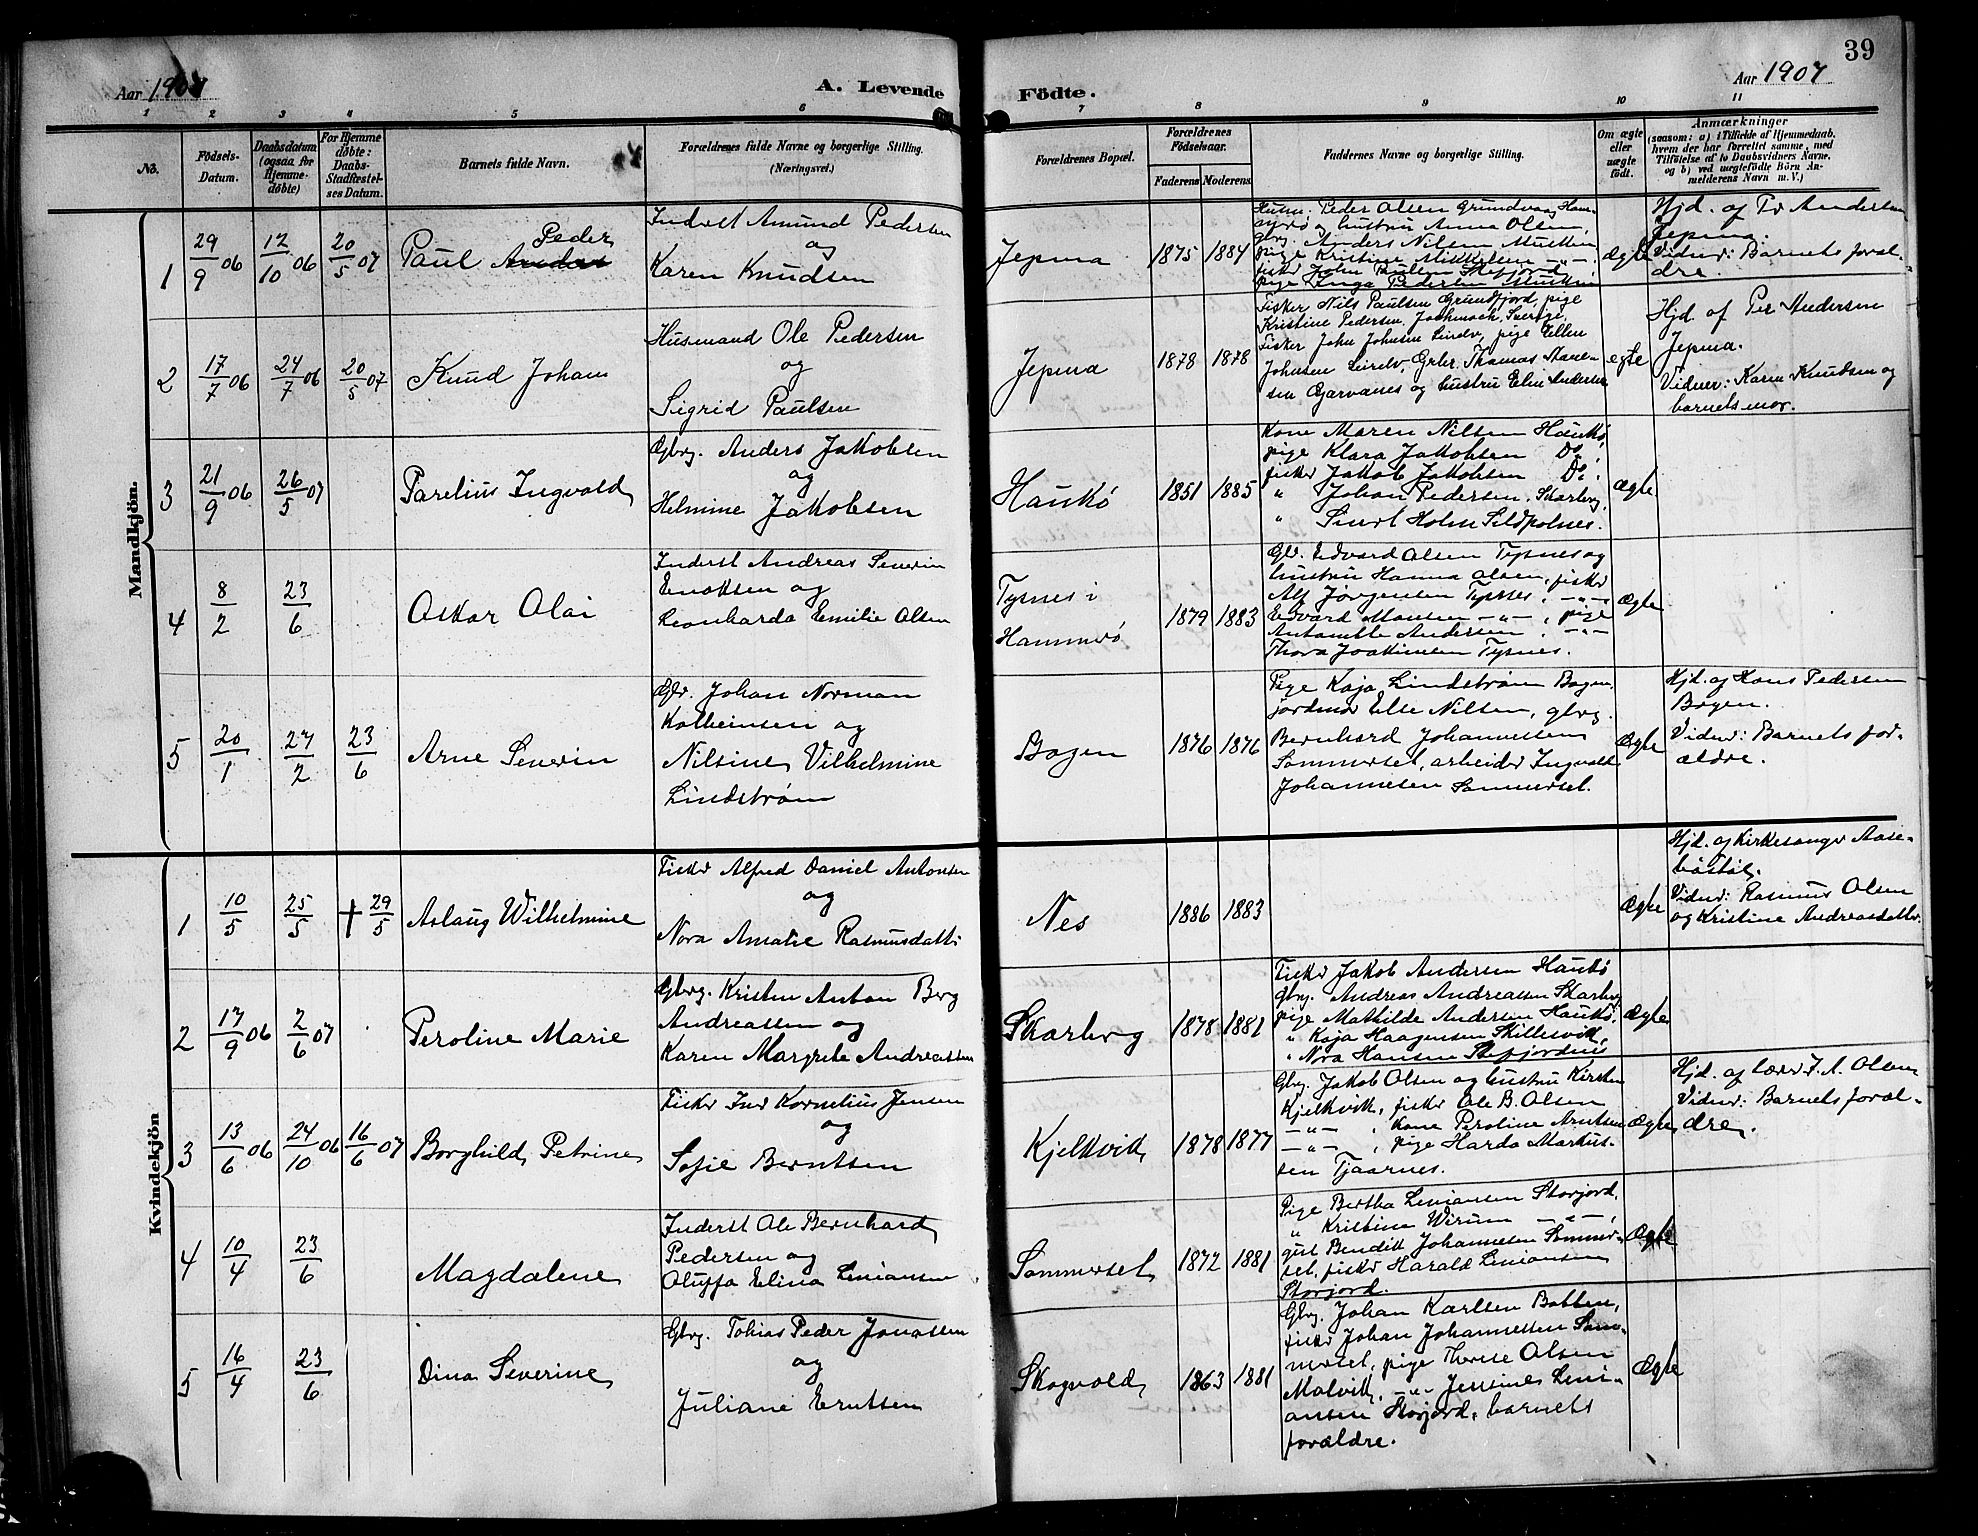 39
Aar 1907
A. Levende
Födte.
Aar 1907
1 2 3 4 5 6 7 8 9 10 11
No.
Födsels-
Datum.
Daabsdatum
(ogsaa for
Hjemme-
døbte)
For Hjemme
døbte:
Daabs
Stadfæstel-
ses Datum.
Barnets fulde Navn.
Forældrenes fulde Navne og borgerlige Stilling.
(Næringsvei.)
Forældrenes Bopæl.
Forældrenes
Födselsaar.
Faderens
Moderens
Faddernes Navne og borgerlige Stilling.
Om ægte
eller
uægte
födt.
Anmærkninger
(saasom: a) i Tilfælde af Hjemmedaab,
hvem der har forrettet samme, med
Tilföielse af to Daabsvidners Navne,
og b) ved uægtefödte Börn An-
melderens Navn m. V.)
Mandkjön.
1
29/9 06
12/10 06
20/5 07
Peder
Paul Andas
Inderst Amund Pedersen
og
Karen Knudsen
Jepma
1875
1884
Husm. Peder Olsen Grundvaag Ham-
merø og hustru Anna Olsen,
gbrg. Anders Nilsen
pige Kristine Mikkelsen -"-
fiskr John Paulsen Stefjord,
pige Inga Pedersen
ægte
Hjd. af Pr Andersen
Jepma.
Vidner: Barnets foræl-
dre.
2
17/7 06
24/7 06
20/5 07
Knud Johan
Husmand Ole Pedersen
og
Sigrid Paulsen
Jepma
1878
1878
Fisker Nils Paulsen Grundfjord, pige
Kristine Pedersen, Jockmock, Sverige,
Fisker John Johnsen pige Ellen
Johnsen Thomas
sen Garvanes og hustru Elin Andersen
egte
Hjd. af Per Andersen
Jepma.
Vidner: Karen Knudsen og
barnets mor.
3
21/9 06
26/5 07
Parelius Ingvald
Gbrg. Anders Jakobsen
og
Helmine Jakobsen
Haukø
1851
1885
Kone Maren Nilsen Haukø,
pige Klara Jakobsen Do.
fiskr Jakob Jakobsen Do.
" Johan Pedersen, Skarberg,
" Sivert Holm Sildpolnes.
Ægte
4
8/2
23/6
Oskar Olai
Inderst Andreas Severin
Enoksen og
Leonharda Emilie Olsen
Tysnes i
Hammerø
1879
1883
Gbr. Edvard Olsen Tysnes og
hustru Hanna Olsen, fiskr
Alf Jørgensen Tysnes, -"-
Edvard Monsen -"-, pige
Antonette Andersen, -"-
Thora Joakimsen Tysnes.
Ægte
5
20/1
27/2
23/6
Arne Severin
Gbr. Johan Norman
Kolbeinsen og
Nilsine Vilhelmine
Lindstrøm
Bogen
1876
1876
Pige Kaja Lindstrøm Bogen,
jordmor Else Nilsen, gbrg.
Bernhard Johannessen
Sommerset, arbeider Ingvald
Johannesen Sommerset.
Ægte
Hjd. af Hans Pedersen
Bogen.
Vidner: Barnets for-
ældre.
Kvindekjön
1
10/5
25/5
† 29/5
Aslaug Wilhelmine
Fiskr Alfred Daniel Antonsen
og
Nora Amalie Rasmusdattr
Nes
1886
1883
Ægte
Hjd. af Kirkesanger Aase-
bøstøl.
Vidner: Rasmus Olsen
og Kristine Andreasdattr.
2
17/9 06
2/6 07
Peroline Marie
Gbrg. Kristen Anton Berg
Andreassen og
Karen Margrete Andreassen
Skarberg
1878
1881
Fiskr Jakob Andersen Haukø
Gbrg. Andreas Andreassen Skarberg
pige Mathilde Andersen Haukø,
" Kaja Haagensen Skillesvik,
" Nora Hansen Stefjordnes
Ægte
3
13/6 06
24/10 06
16/6 07
Borghild Petrine
Fiskr Inr Kornelius Jensen
og
Sofie Berntsen
Kjelkvik
1878
1877
Gbrg. Jakob Olsen og hustru Kirsten
Kjelkvik, fiskr Ole B. Olsen
-"-, Kone Peroline Arntsen
-"-, pige Harda Markus-
sen Tjaarnes.
Ægte
Hjd. af lærer J. A. Olsen
Vidner: Barnets foræl-
dre.
4
10/4
23/6
Magdalene
Inderst Ole Bernhard
Pedersen og
Oluffa Elina Liniansen
Sommerset
1872
1881
Pige Bertha Liniansen Storjord,
" Kristine Wirum -"-,
gut Bendik Johannesen Sommer-
set, fiskr Harald Liniansen
Storjord.
Ægte
5
16/4
23/6
Dina Severine
Gbrg. Tobias Peder Jonassen
og
Juliane Erntsen
Skogvold
1863
1881
Gbrg. Johan Karlsen Botten,
fiskr Johan Johannessen Som-
merset, pige Therese Olsen
Malvik, -"- Jensine Lini-
ansen Storjord, barnets
forældre.
Ægte